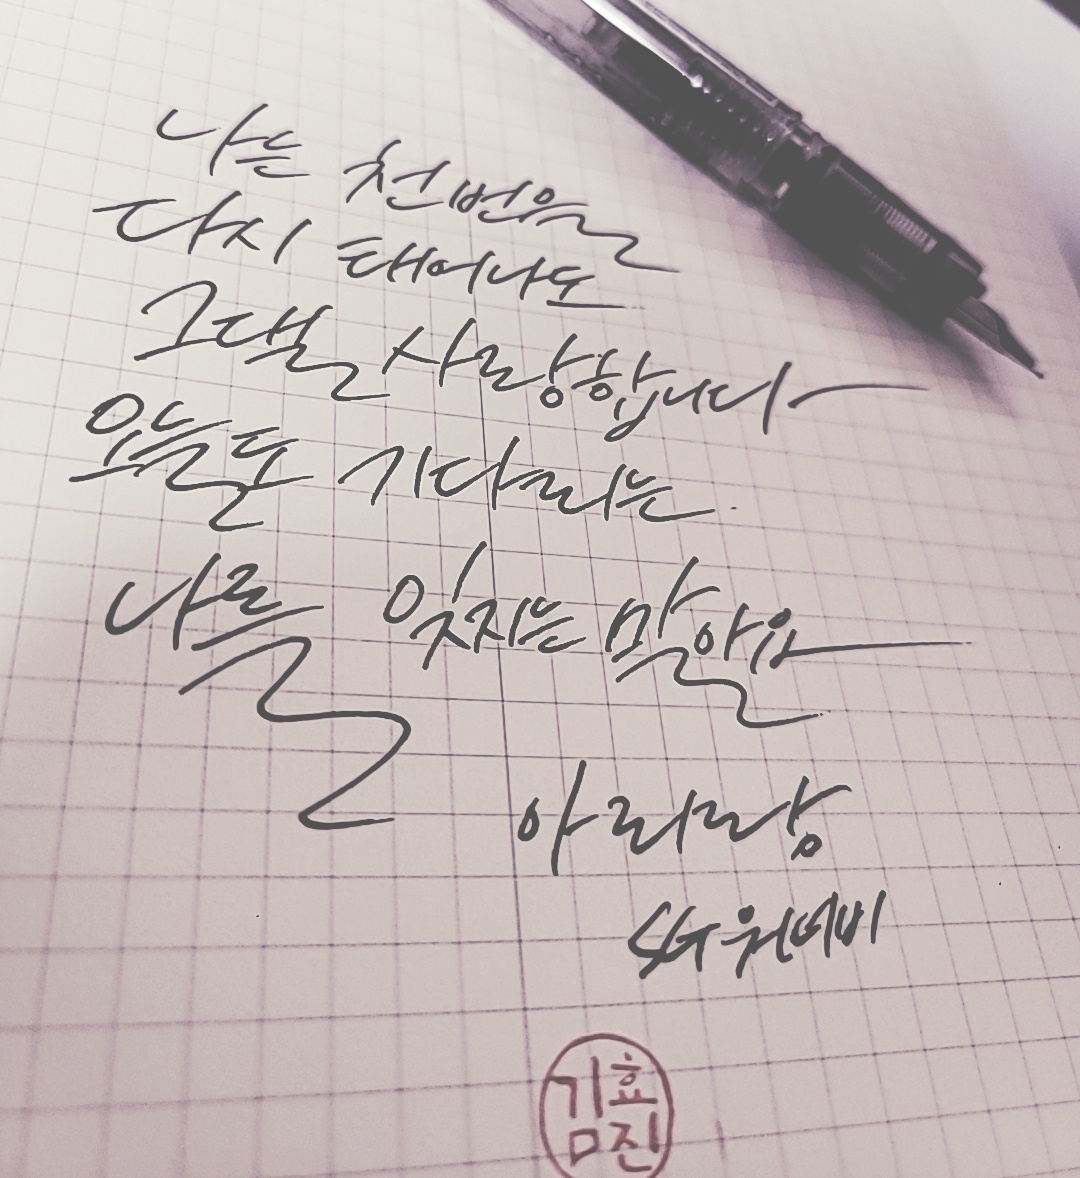 나는 천번을
다시 태어나도
그댈 사랑합니다
오늘도 기다리는
나를 잊지는 말아요
아리랑
SG워너비
김효진